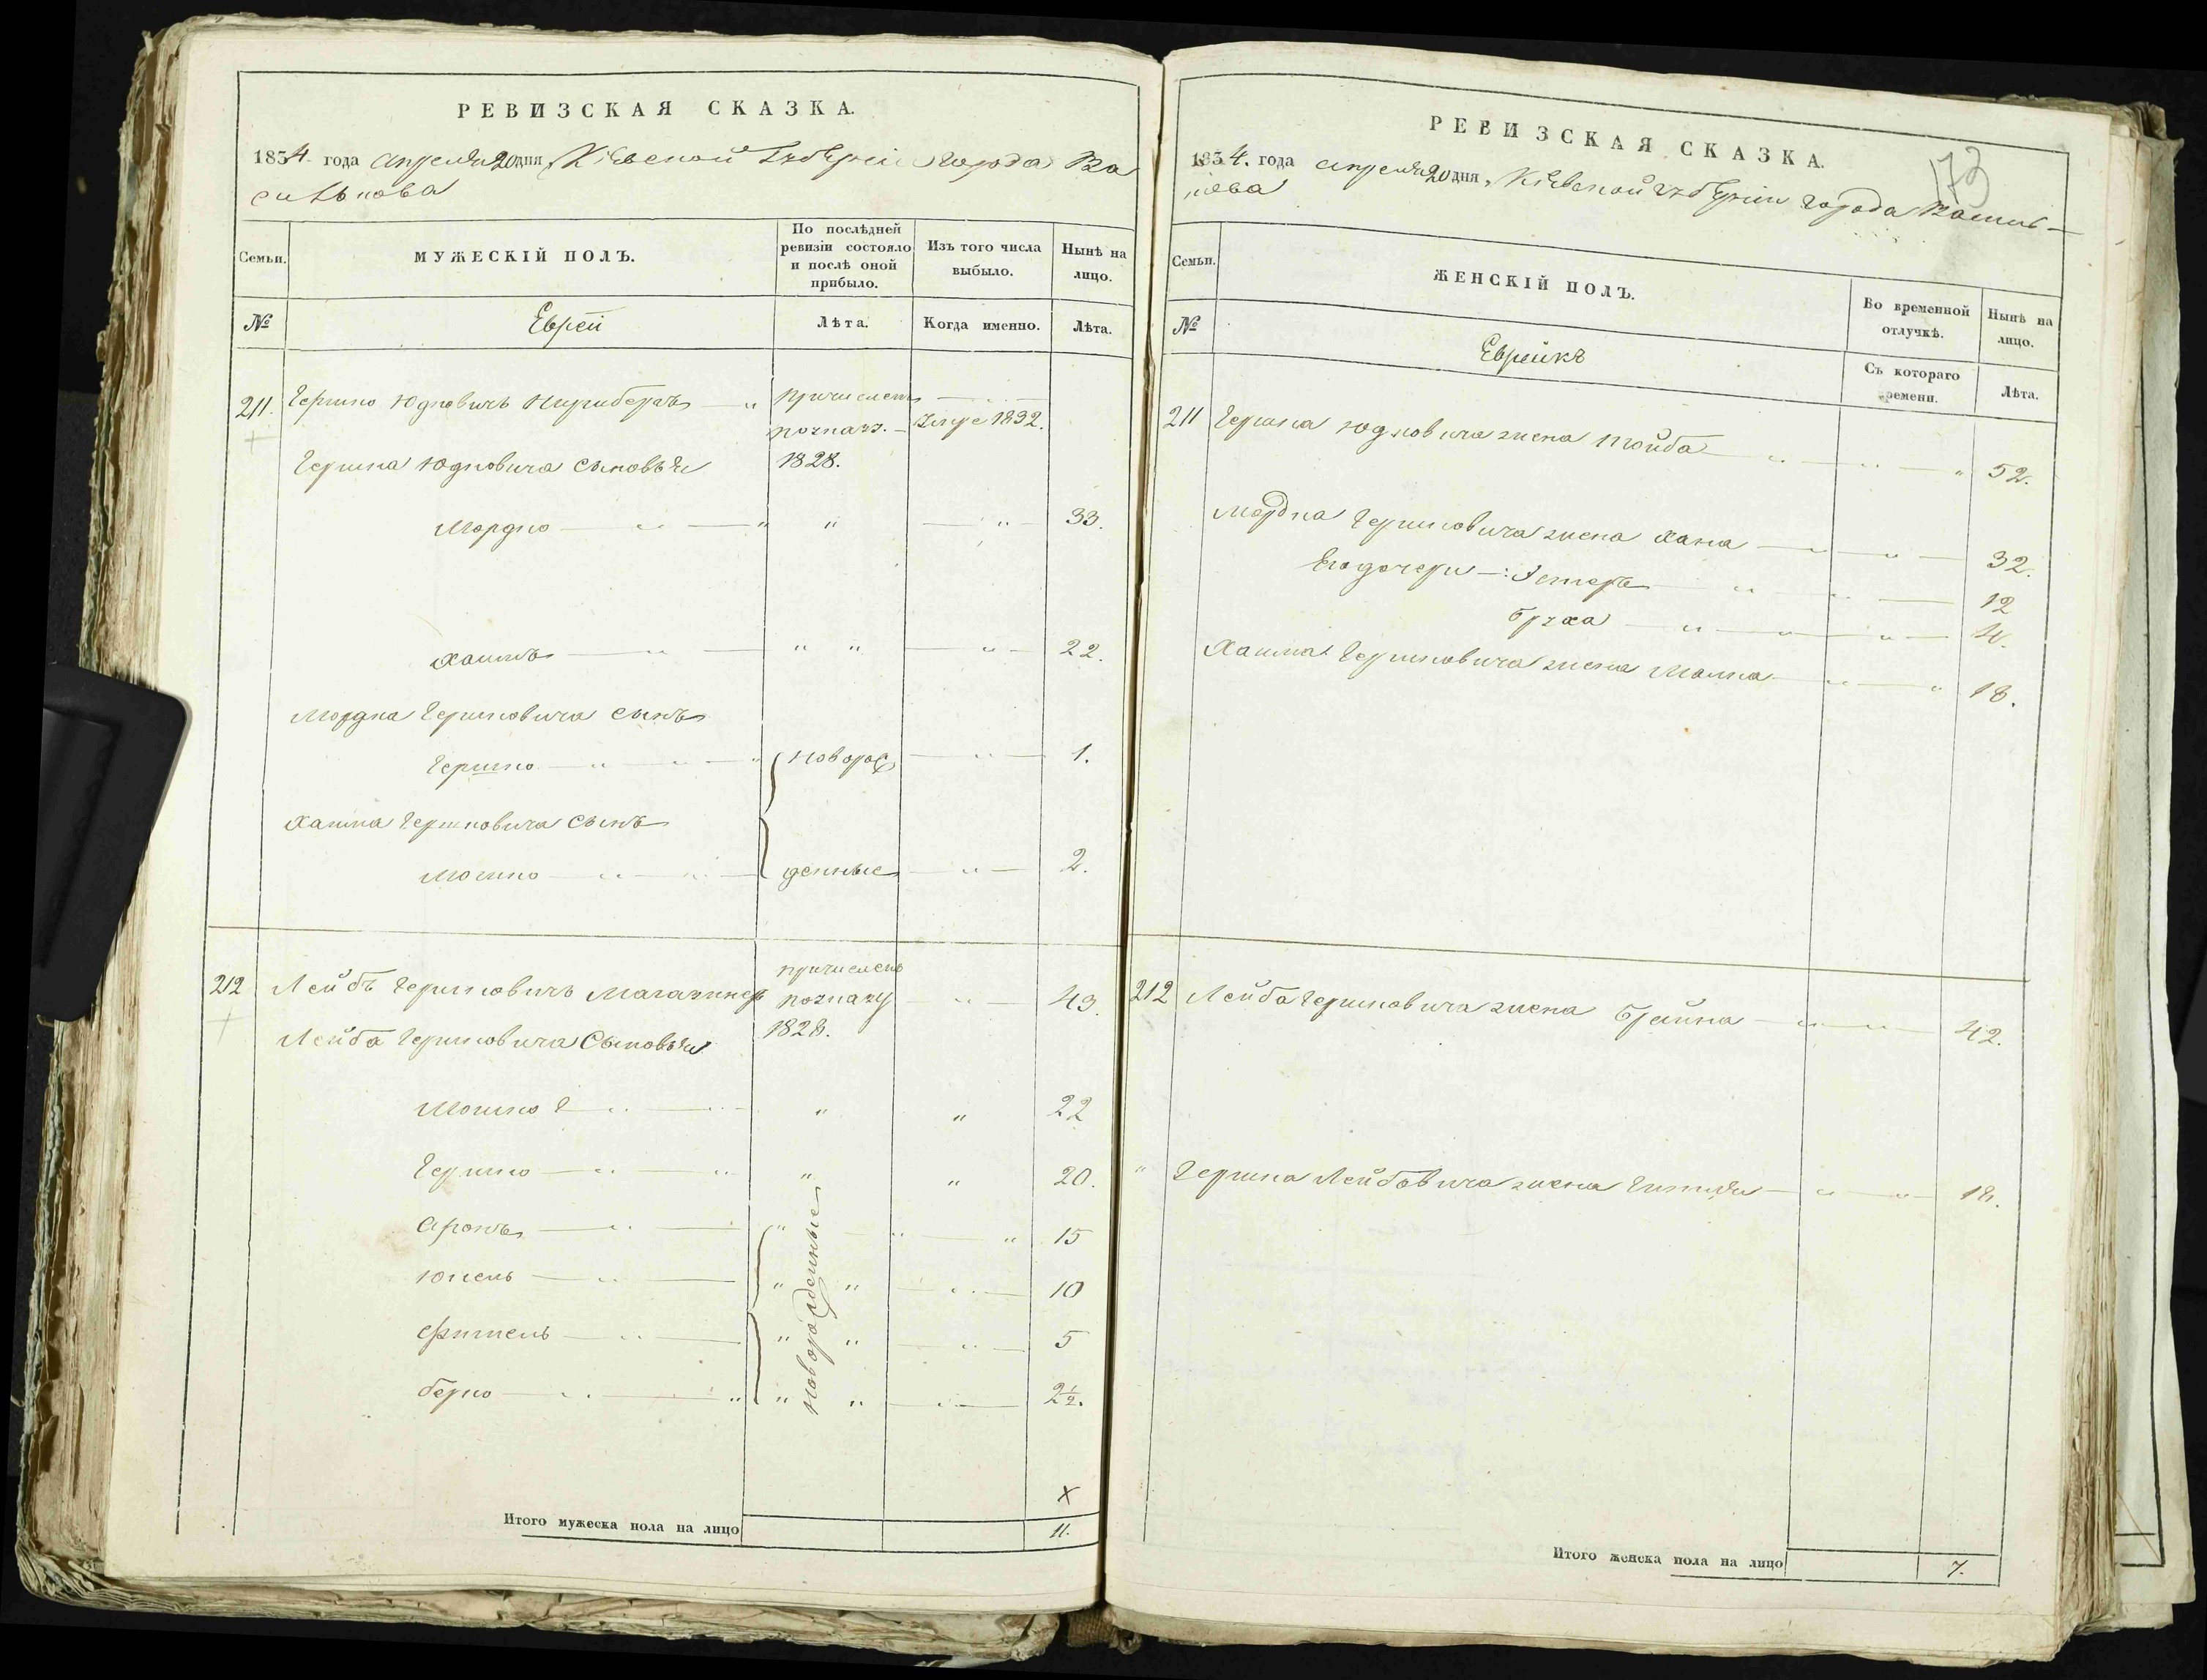 РЕВИЗСКАЯ СКАЗКА.
1834 года апреля 20 дня, Кіевской Губерніи города Ва
силькова
Семьи.
МУЖЕСКІЙ ПОЛЪ.
По послѣдней ревизіи состояло и послѣ оной прибыло.
Изъ того числа выбыло.
Нынѣ на лицо.
№
Еврей
Лѣта.
Когда именно.
Лѣта.
211. Гершко Юдковичъ причисленъ
по указ. 1828. умре 1832.
Гершка Юдковича сыновья
Мордко 33.
Хаимъ 22.
Мордка Гершковича сынъ
Гершко 1.
новорож
Хаима Гершковича сынъ
Мошко 2.
денные
212 Лейбъ Гершковичъ Магазинеръ причисленъ по указу 1828. 43.
Лейба Гершковича Сыновья
Мошко 22
Гершко 20.
Аронъ 15
Юкель 10
Фишель 5
Берко 2½.
новорожденные
х
Итого мужеска пола на лицо 11.
РЕВИЗСКАЯ СКАЗКА.
173
1834. года апреля 20 дня, Кіевской губерніи города Василь-
кова
Семьи.
ЖЕНСКІЙ ПОЛЪ.
Во временной отлучкѣ.
Нынѣ на лицо.
№
Еврейкъ
Съ котораго времени.
Лѣта.
211 Гершка Юдковича жена Тойба 52.
Мордка Гершковича жена Хана 32.
Его дочери: Эстеръ 12
Бруха 4.
Хаима Гершковича жена Малка 18.
212 Лейба Гершковича жена Брайна 42.
Гершка Лейбовича жена 18.
Итого женска пола на лицо 7.